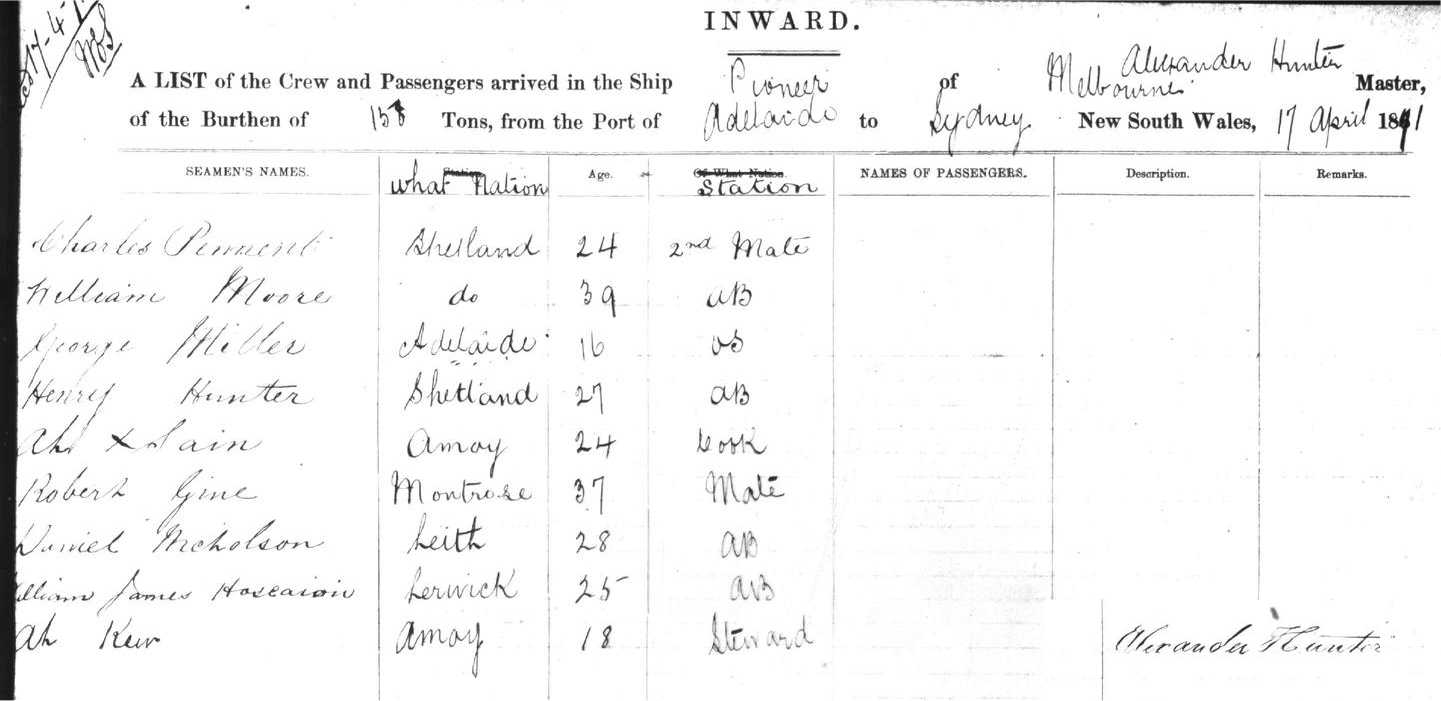 INWARD.
A LIST of the Crew and Passengers arrived in the Ship Pioneer of Melbourne Alexander Hunter Master,
of the Burthen of 158 Tons, from the Port of Adelaide to Sydney New South Wales, 17 April 1871
SEAMEN'S NAMES. Station what Nation Age. Of What Nation. Station NAMES OF PASSENGERS. Description. Remarks.
Charles Shetland 24 2nd Mate
William Moore do 39 AB
George Miller Adelaide 16 OS
Henry Hunter Shetland 27 AB
Ah x Sain Amoy 24 Cook
Robert Gine Montrose 37 Mate
Daniel Nicholson Leith 28 AB
William James Lerwick 25 AB
Ah Kew Amoy 18 Steward
Alexander Hunter